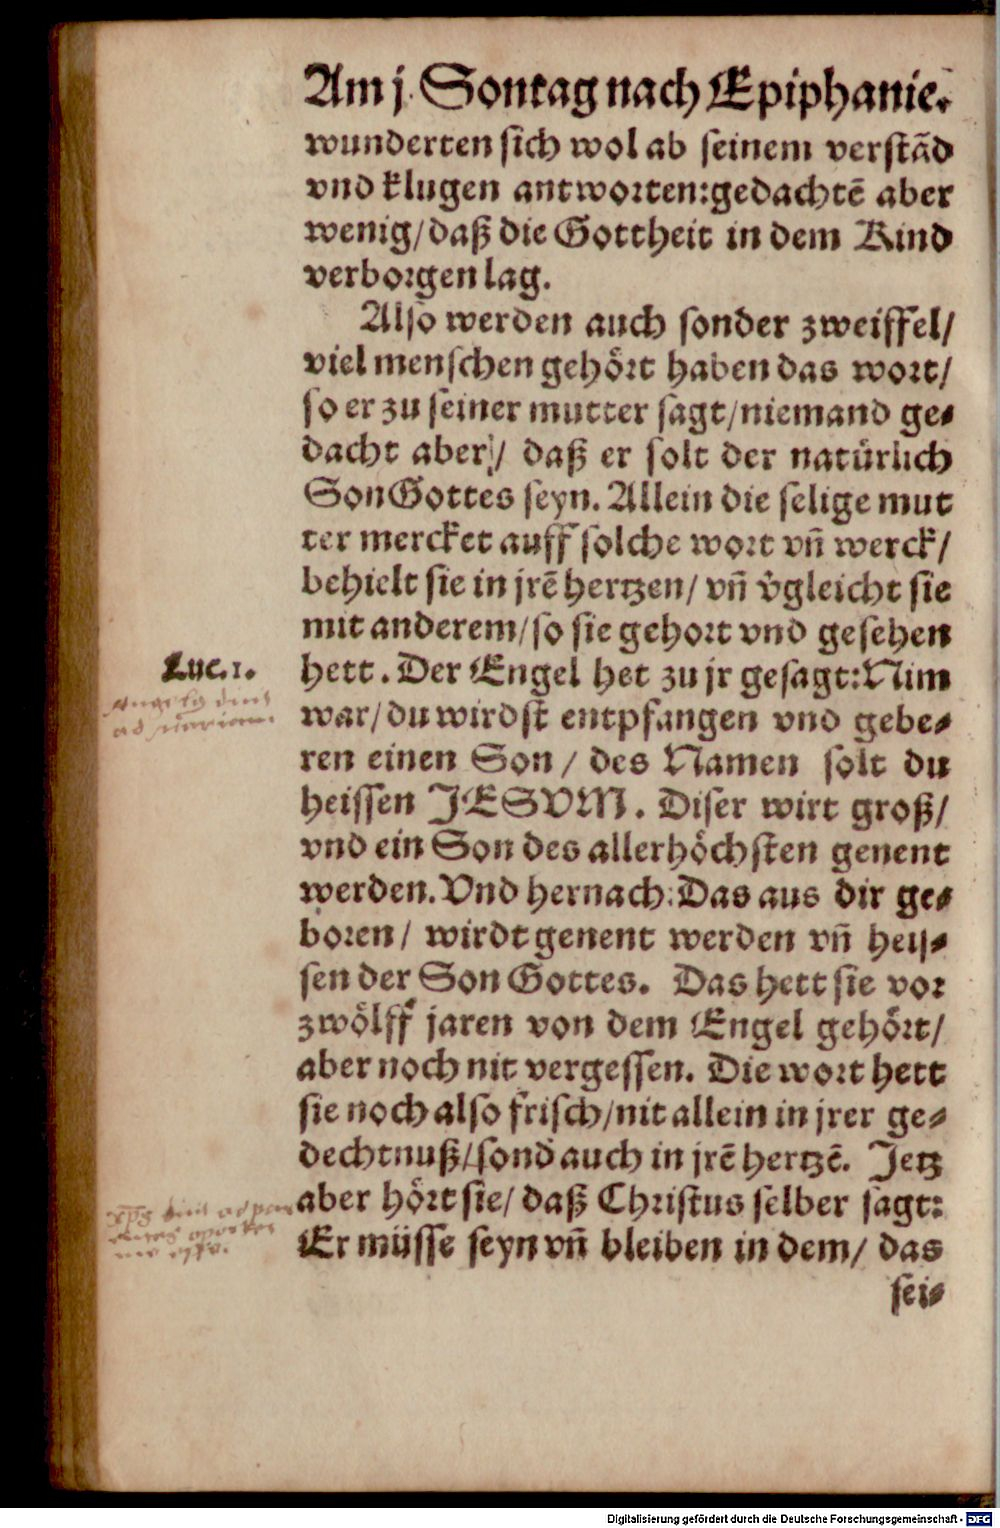 Am j. Sontag nach Epiphanie.
wunderten sich wol ab seinem verstãd
vnd klugen antworten: gedachtẽ aber
wenig/ daß die Gottheit in dem Kind
verborgen lag.
Also werden auch sonder zweiffel/
viel menschen gehört haben das wort/
so er zu seiner mutter sagt/ niemand ge-
dacht aber/ daß er solt der natürlich
Son Gottes seyn. Allein die selige mut
ter mercket auff solche wort vñ werck/
behielt sie in jrẽ hertzen/ vñ v̉gleicht sie
mit anderem/ so sie gehort vnd gesehen
Luc. 1.
hett. Der Engel het zu jr gesagt: Nim
war/ du wirdst entpfangen vnd gebe-
ren einen Son/ des Namen solt du
heissen JESVM. Diser wirt groß/
vnd ein Son des allerhöchsten genent
werden. Vnd hernach: Das aus dir ge-
boren/ wirdt genent werden vñ heis-
sen der Son Gottes. Das hett sie vor
zwölff jaren von dem Engel gehört/
aber noch nit vergessen. Die wort hett
sie noch also frisch/ nit allein in jrer ge-
dechtnuß/ sond̉ auch in jrẽ hertzẽ. Jetz
aber hört sie/ daß Christus selber sagt:
Er müsse seyn vñ bleiben in dem/ das
sei-
ad
ad
Digitalisierung gefördert durch die Deutsche Forschungsgemeinschaft - DFG